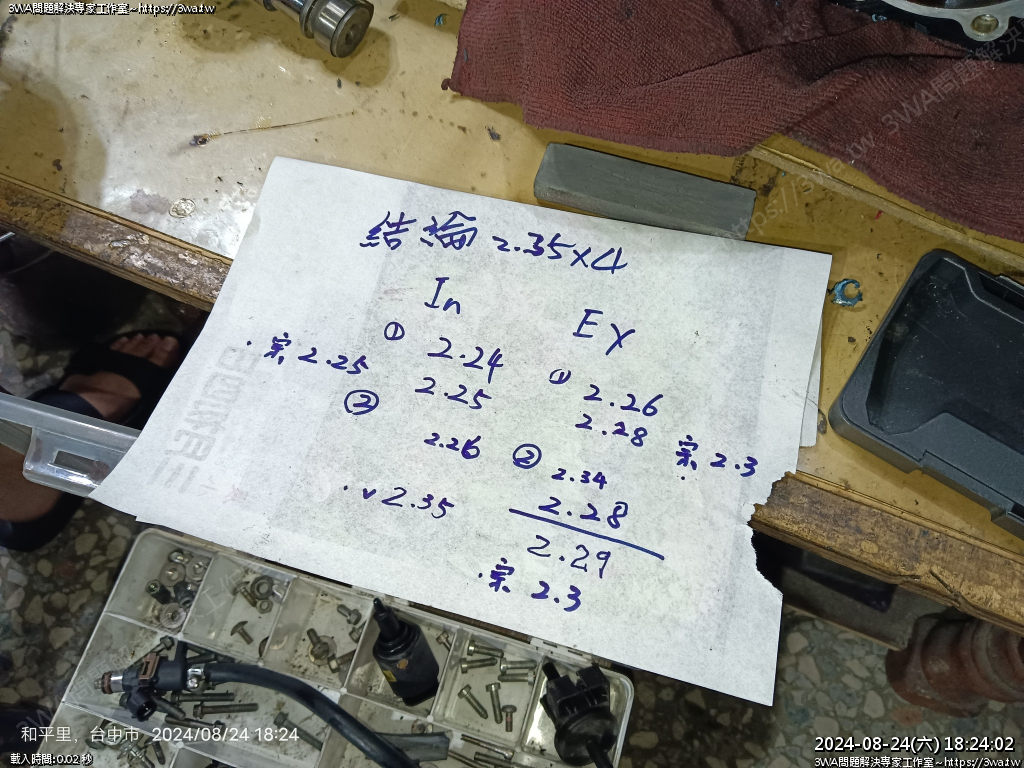 3WA問題解決專家工作室~https://3wa.tw
結論 2.35×4
In
Ex
① 2.24
2.25
. 案 2.25
②
2.26
. v 2.35
① 2.26
2.28
案 2.3
② 2.34
2.28
2.29
. 案 2.3
和平里, 台中市 2024/08/24 18:24
載入時間:0.02 秒
2024-08-24(六) 18:24:02
3WA問題解決專家工作室~https://3wa.tw